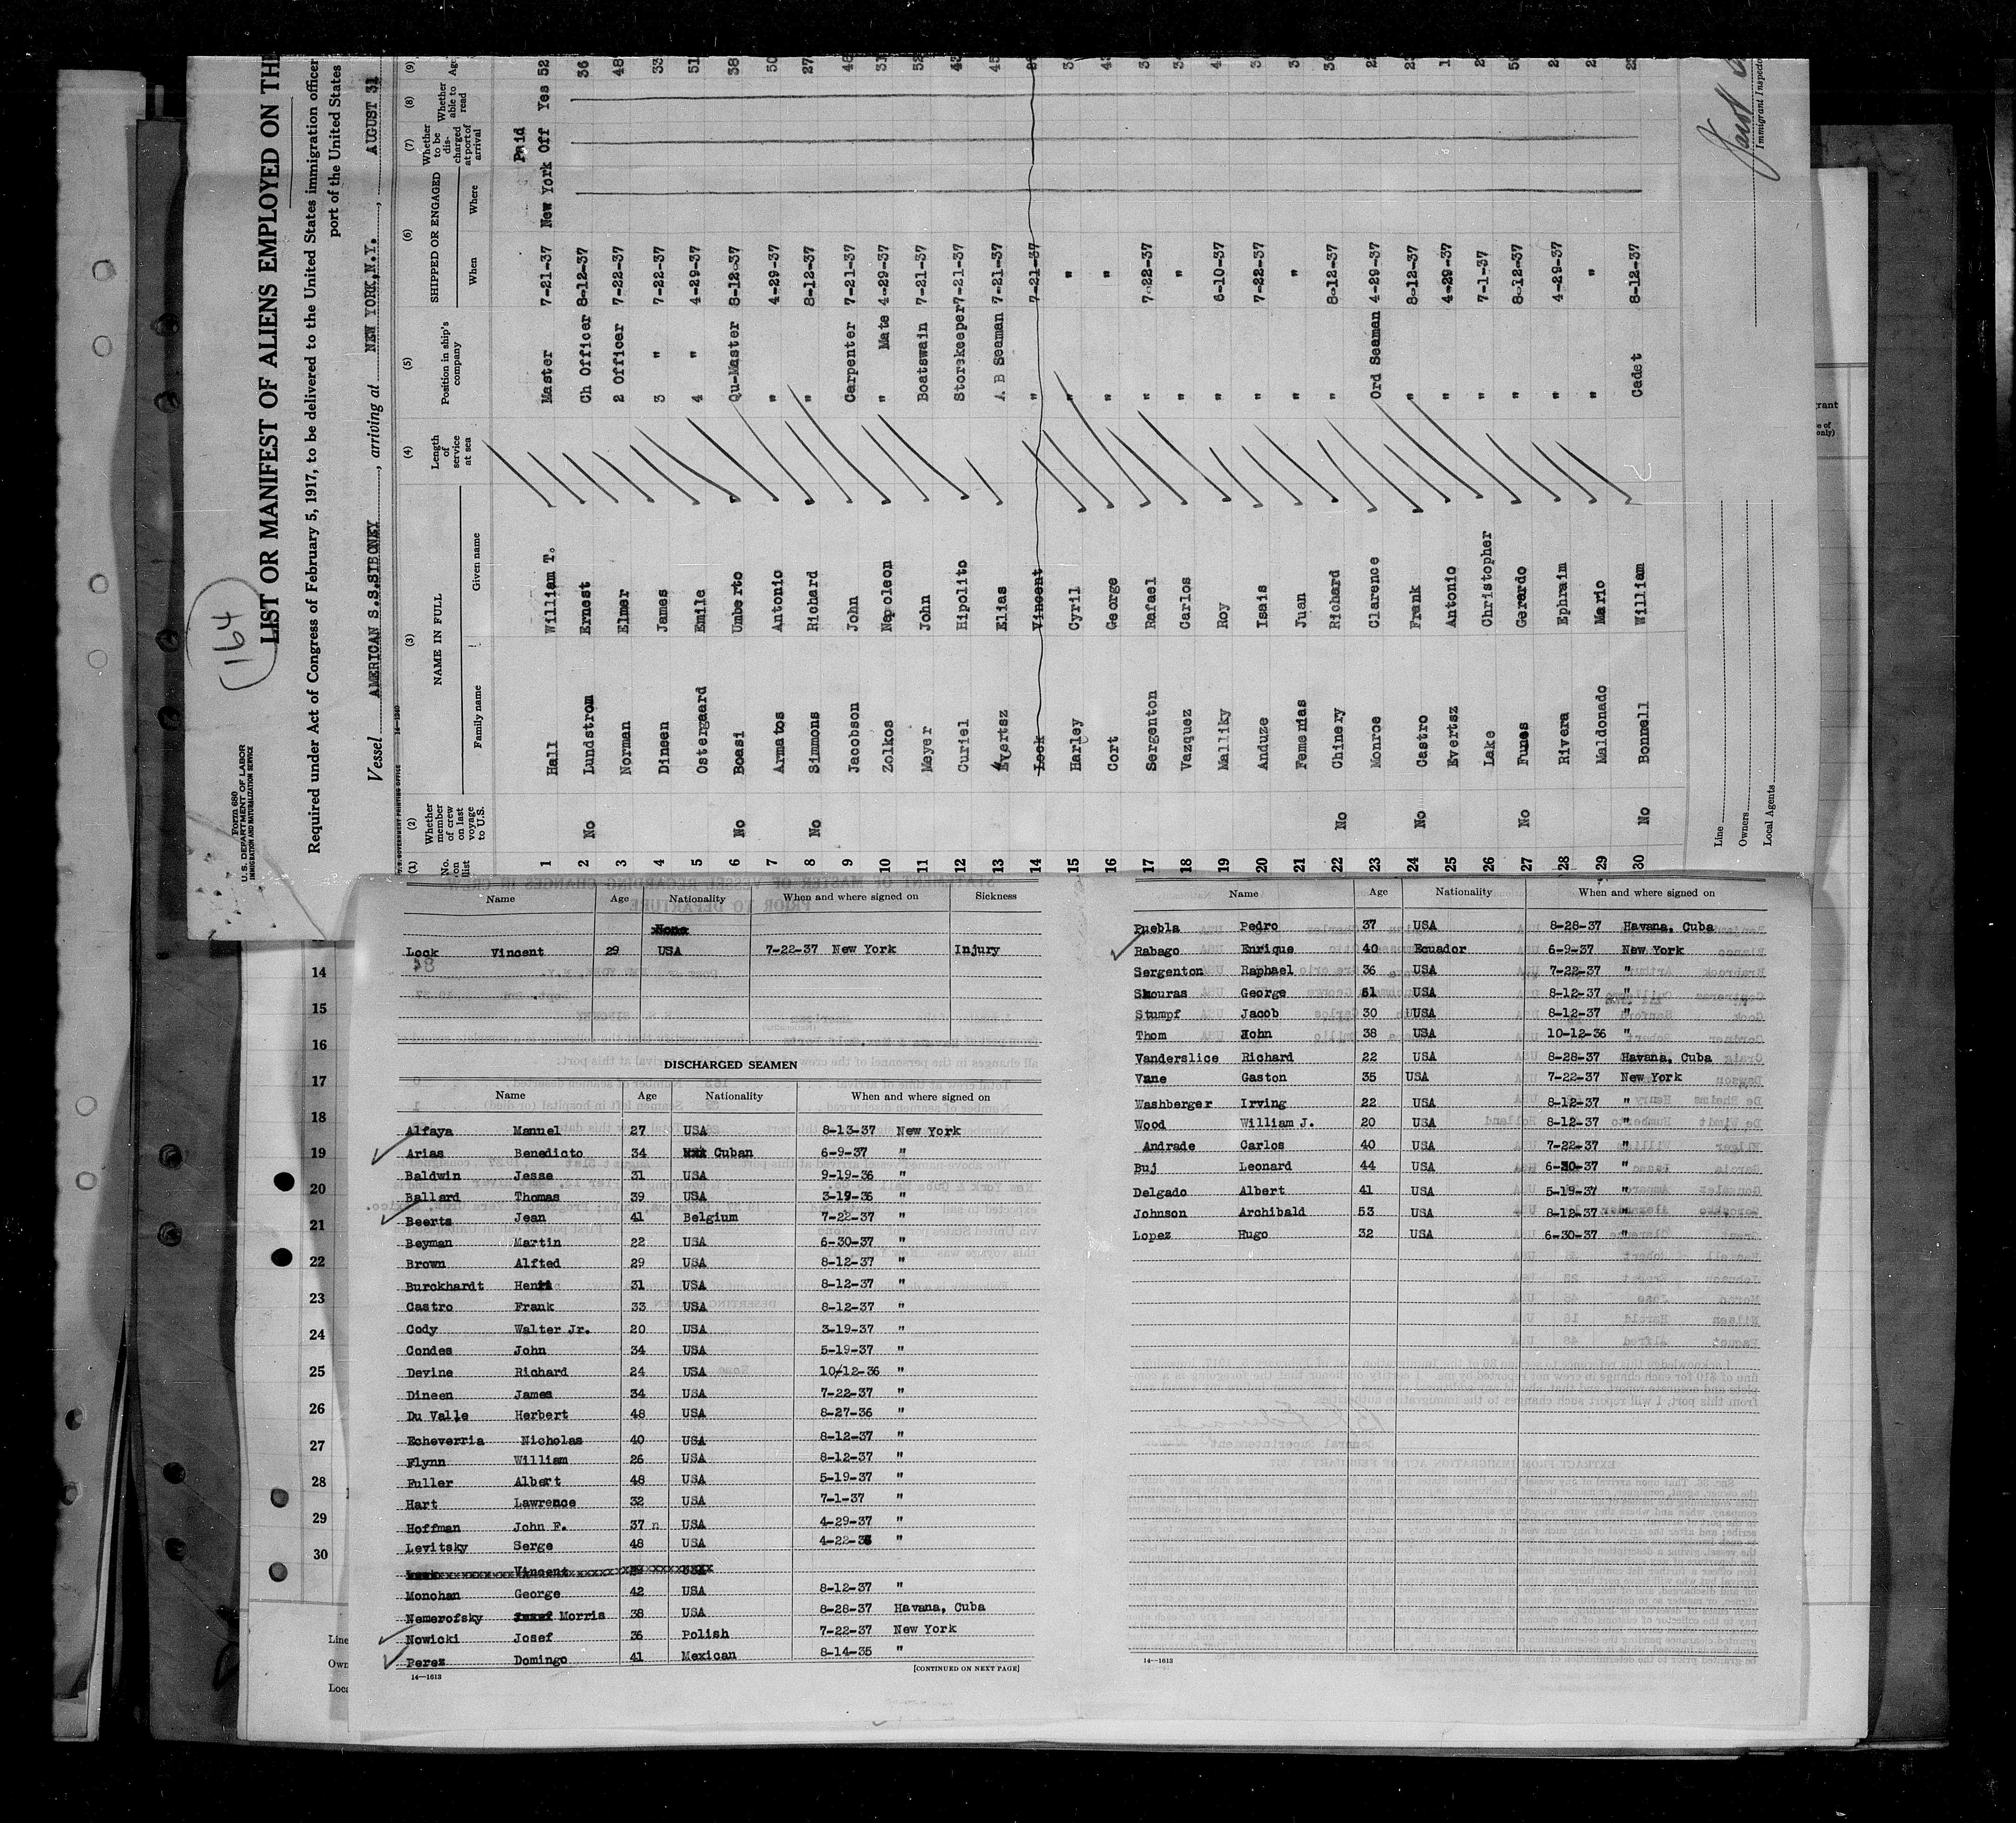 (164)
Form 680
U. S. DEPARTMENT OF LABOR
IMMIGRATION AND NATURALIZATION SERVICE
LIST OR MANIFEST OF ALIENS EMPLOYED ON THE
Required under Act of Congress of February 5, 1917, to be delivered to the United States immigration officer
port of the United States
Vessel AMERICAN S.S.SIBONEY, arriving at NEW YORK,N.Y., AUGUST 31
U. S. GOVERNMENT PRINTING OFFICE 14-1240
(1) (2) (3) (4) (5) (6) (7) (8) (9)
No. on list Whether member of crew on last voyage to U.S. NAME IN FULL Family name Given name Length of service at sea Position in ship's company SHIPPED OR ENGAGED When Where Whether to be dis-charged at port of arrival Whether able to read Age
Paid
1 Hall William T. Master 7-21-37 New York Off Yes 52
2 No Lundstrom Ernest Ch Officer 8-12-37 36
3 Norman Elmer 2 Officer 7-22-37 48
4 Dineen James 3 " 7-22-37 33
5 Ostergaard Emile 4 " 4-29-37 51
6 No Boasi Umberto Qu-Master 8-12-37 38
7 Armatos Antonio " 4-29-37 50
8 No Simmons Richard " 8-12-37 27
9 Jacobson John Carpenter 7-21-37 46
10 Zolkos Napoleon " Mate 4-29-37 31
11 Meyer John Boatswain 7-21-37 52
12 Curiel Hipolito Storekeeper 7-21-37 43
13 Evertsz Elias A B Seaman 7-21-37 45
14 Lock Vincent " 7-21-37
15 Harley Cyril " "
16 Cort George " "
17 Sergenton Rafael " 7-22-37
18 Vazquez Carlos " "
19 Malliky Roy " 6-10-37
20 Anduze Isais " 7-22-37
21 Femenias Juan " "
22 No Chinery Richard " 8-12-37
23 Monroe Clarence Ord Seaman 4-29-37
24 No Castro Frank " 8-12-37
25 Evertsz Antonio " 4-29-37
26 Lake Christopher " 7-1-37
27 No Funes Gerardo " 8-12-37
28 Rivera Ephraim " 4-29-37
29 Maldonado Mario " "
30 No Bonnell William Cadet 8-12-37
Line
Owners
Local Agents
Immigrant Inspector
Name Age Nationality When and where signed on Sickness
None
Lock Vincent 29 USA 7-22-37 New York Injury
DISCHARGED SEAMEN
Name Age Nationality When and where signed on
Alfaya Manuel 27 USA 8-13-37 New York
Arias Benedicto 34 Cuban 6-9-37 "
Baldwin Jesse 31 USA 9-19-36 "
Ballard Thomas 39 USA 3-19-36 "
Beerts Jean 41 Belgium 7-22-37 "
Beyman Martin 22 USA 6-30-37 "
Brown Alfted 29 USA 8-12-37 "
Burckhardt Henri 31 USA 8-12-37 "
Castro Frank 33 USA 8-12-37 "
Cody Walter Jr. 20 USA 3-19-37 "
Condes John 34 USA 5-19-37 "
Devine Richard 24 USA 10/12-36 "
Dineen James 34 USA 7-22-37 "
Du Valle Herbert 48 USA 8-27-36 "
Echeverria Nicholas 40 USA 8-12-37 "
Flynn William 26 USA 8-12-37 "
Fuller Albert 48 USA 5-19-37 "
Hart Lawrence 32 USA 7-1-37 "
Hoffman John F. 37 n USA 4-29-37 "
Levitsky Serge 48 USA 4-22-36 "
Vincent
Monohan George 42 USA 8-12-37 "
Nemerofsky Morris 38 USA 8-28-37 Havana, Cuba
Nowicki Josef 36 Polish 7-22-37 New York
Perez Domingo 41 Mexican 8-14-35 "
14—1613
[CONTINUED ON NEXT PAGE]
Name Age Nationality When and where signed on
Puebla Pedro 37 USA 8-28-37 Havana, Cuba
Rabago Enrique 40 Ecuador 6-9-37 New York
Sergenton Raphael 36 USA 7-22-37 "
Skouras George 51 USA 8-12-37 "
Stumpf Jacob 30 USA 8-12-37 "
Thom John 38 USA 10-12-36 "
Vanderslice Richard 22 USA 8-28-37 Havana, Cuba
Vane Gaston 35 USA 7-22-37 New York
Washberger Irving 22 USA 8-12-37 "
Wood William J. 20 USA 8-12-37 "
Andrade Carlos 40 USA 7-22-37 "
Buj Leonard 44 USA 6-30-37 "
Delgado Albert 41 USA 5-19-37 "
Johnson Archibald 53 USA 8-12-37 "
Lopez Hugo 32 USA 6-30-37 "
14—1613
14
15
16
17
18
19
20
21
22
23
24
25
26
27
28
29
30
Line
Own
Loca